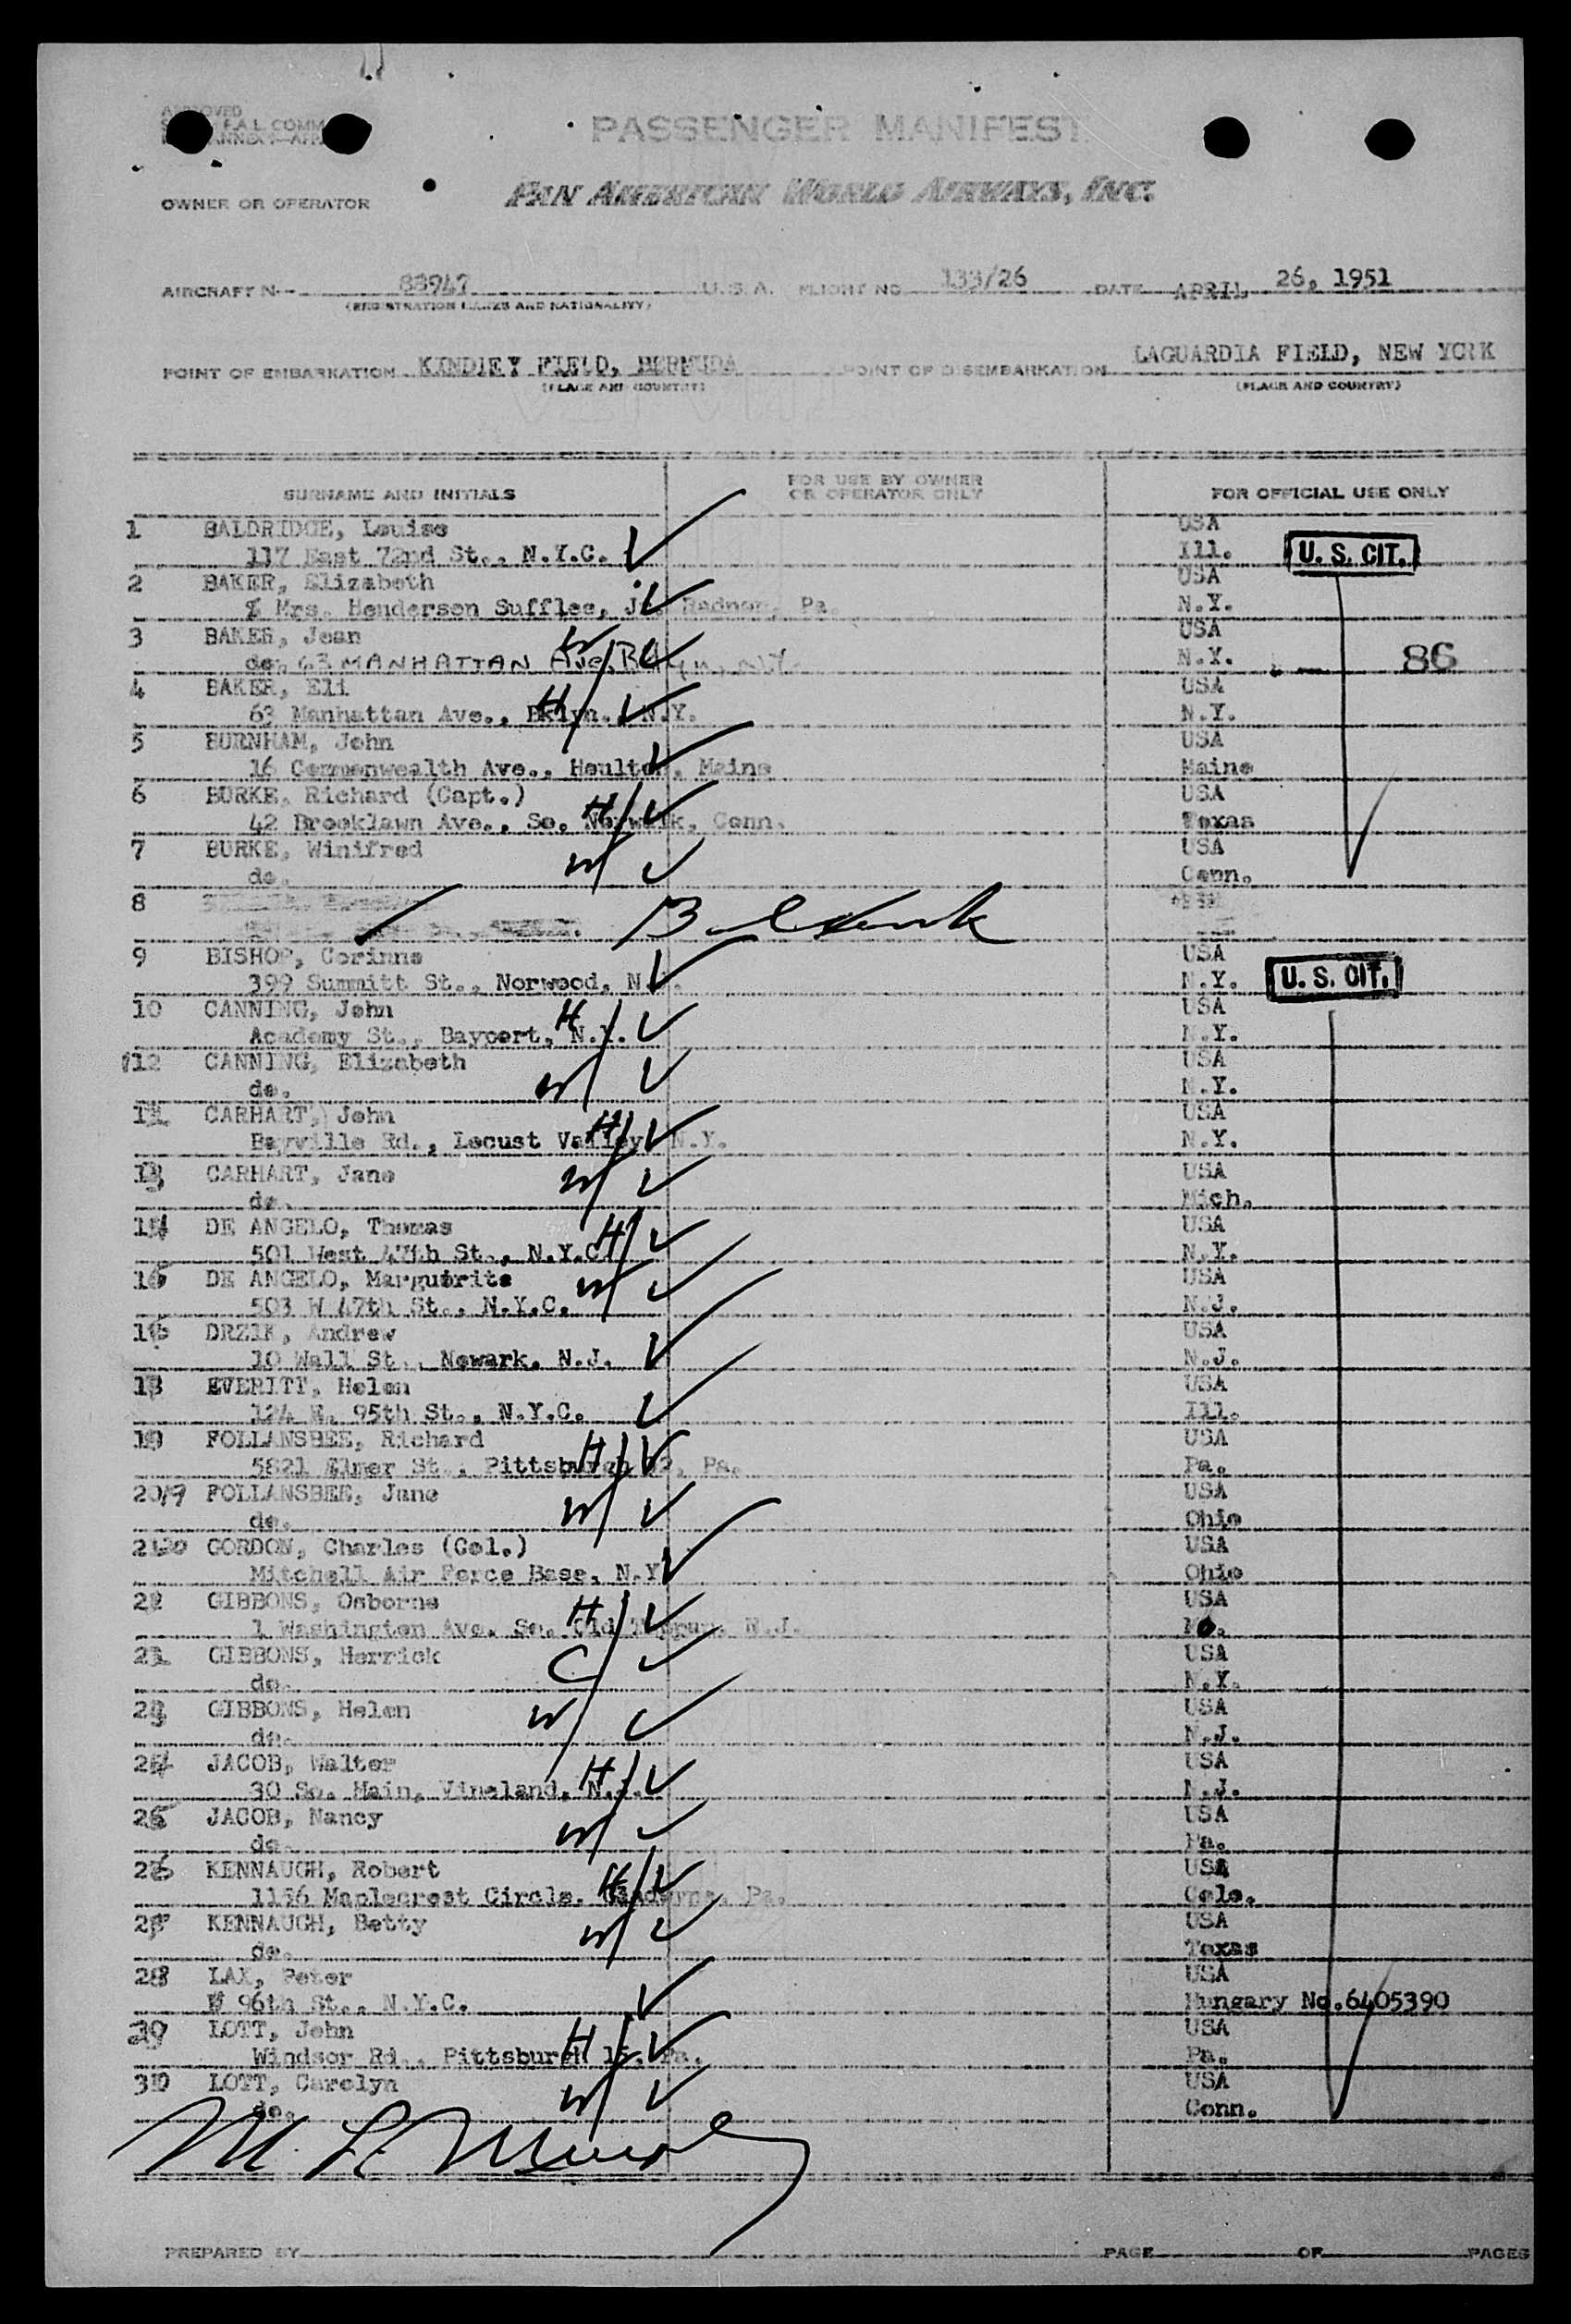 APPROVED
F.A.L. COMM
ANNEX
PASSENGER MANIFEST
OWNER OR OPERATOR PAN AMERICAN WORLD AIRWAYS, INC.
AIRCRAFT N 88947 U.S.A. FLIGHT NO 133/26 DATE APRIL 26, 1951
(REGISTRATION MARKS AND NATIONALITY)
POINT OF EMBARKATION KINDLEY FIELD, BERMUDA POINT OF DISEMBARKATION LAGUARDIA FIELD, NEW YORK
(PLACE AND COUNTRY) (PLACE AND COUNTRY)
SURNAME AND INITIALS FOR USE BY OWNER OR OPERATOR ONLY FOR OFFICIAL USE ONLY
1 BALDRIDGE, Louise USA
117 East 72nd St., N.Y.C. Ill. U. S. CIT.
2 BAKER, Elizabeth USA
% Mrs. Henderson Supplee, Jr. Radnor, Pa. N.Y.
3 BAKER, Jean W USA
do. 63 MANHATTAN Ave, Bklyn, N.Y. N.Y. 86
4 BAKER, Eli H USA
63 Manhattan Ave., Bklyn. N.Y. N.Y.
5 BURNHAM, John USA
16 Commonwealth Ave., Houlton, Maine Maine
6 BURKE, Richard (Capt.) H USA
42 Brooklawn Ave., So. Norwalk, Conn. Texas
7 BURKE, Winifred W USA
do. Conn.
8
9 BISHOP, Corinne USA
399 Summitt St., Norwood, N. N.Y. U. S. CIT.
10 CANNING, John H USA
Academy St., Bayport, N.Y. N.Y.
12 CANNING, Elizabeth W USA
do. N.Y.
CARHART, John H USA
Bayville Rd., Locust Valley N.Y. N.Y.
13 CARHART, Jane W USA
do. Mich.
14 DE ANGELO, Thomas H USA
501 West 47th St., N.Y.C. N.Y.
DE ANGELO, Marguerite W USA
503 W 47th St., N.Y.C. N.J.
16 DRZIK, Andrew USA
10 Wall St., Newark, N.J. N.J.
EVERITT, Helen USA
124 E. 95th St., N.Y.C. Ill.
FOLLANSBEE, Richard H USA
5821 Elmer St., Pittsburgh 32, Pa. Pa.
20 19 FOLLANSBEE, Jane W USA
do. Ohio
21 20 GORDON, Charles (Col.) USA
Mitchell Air Force Base, N.Y. Ohio
GIBBONS, Osborne H USA
1 Washington Ave. So. Old N.J. Mo.
GIBBONS, Herrick C USA
do. N.Y.
GIBBONS, Helen W USA
do. N.J.
24 JACOB, Walter H USA
30 So. Main, Vineland, N.J. N.J.
JACOB, Nancy W USA
do. Pa.
26 KENNAUGH, Robert H USA
1156 Maplecrest Circle, Gladwyne, Pa. Colo.
KENNAUGH, Betty W USA
do. Texas
28 LAX, Peter USA
W 96th St., N.Y.C. Hungary No.6405390
29 LOTT, John H USA
Windsor Rd., Pittsburgh 15, Pa. Pa.
30 LOTT, Carolyn W USA
do. Conn.
PREPARED BY PAGE OF PAGES